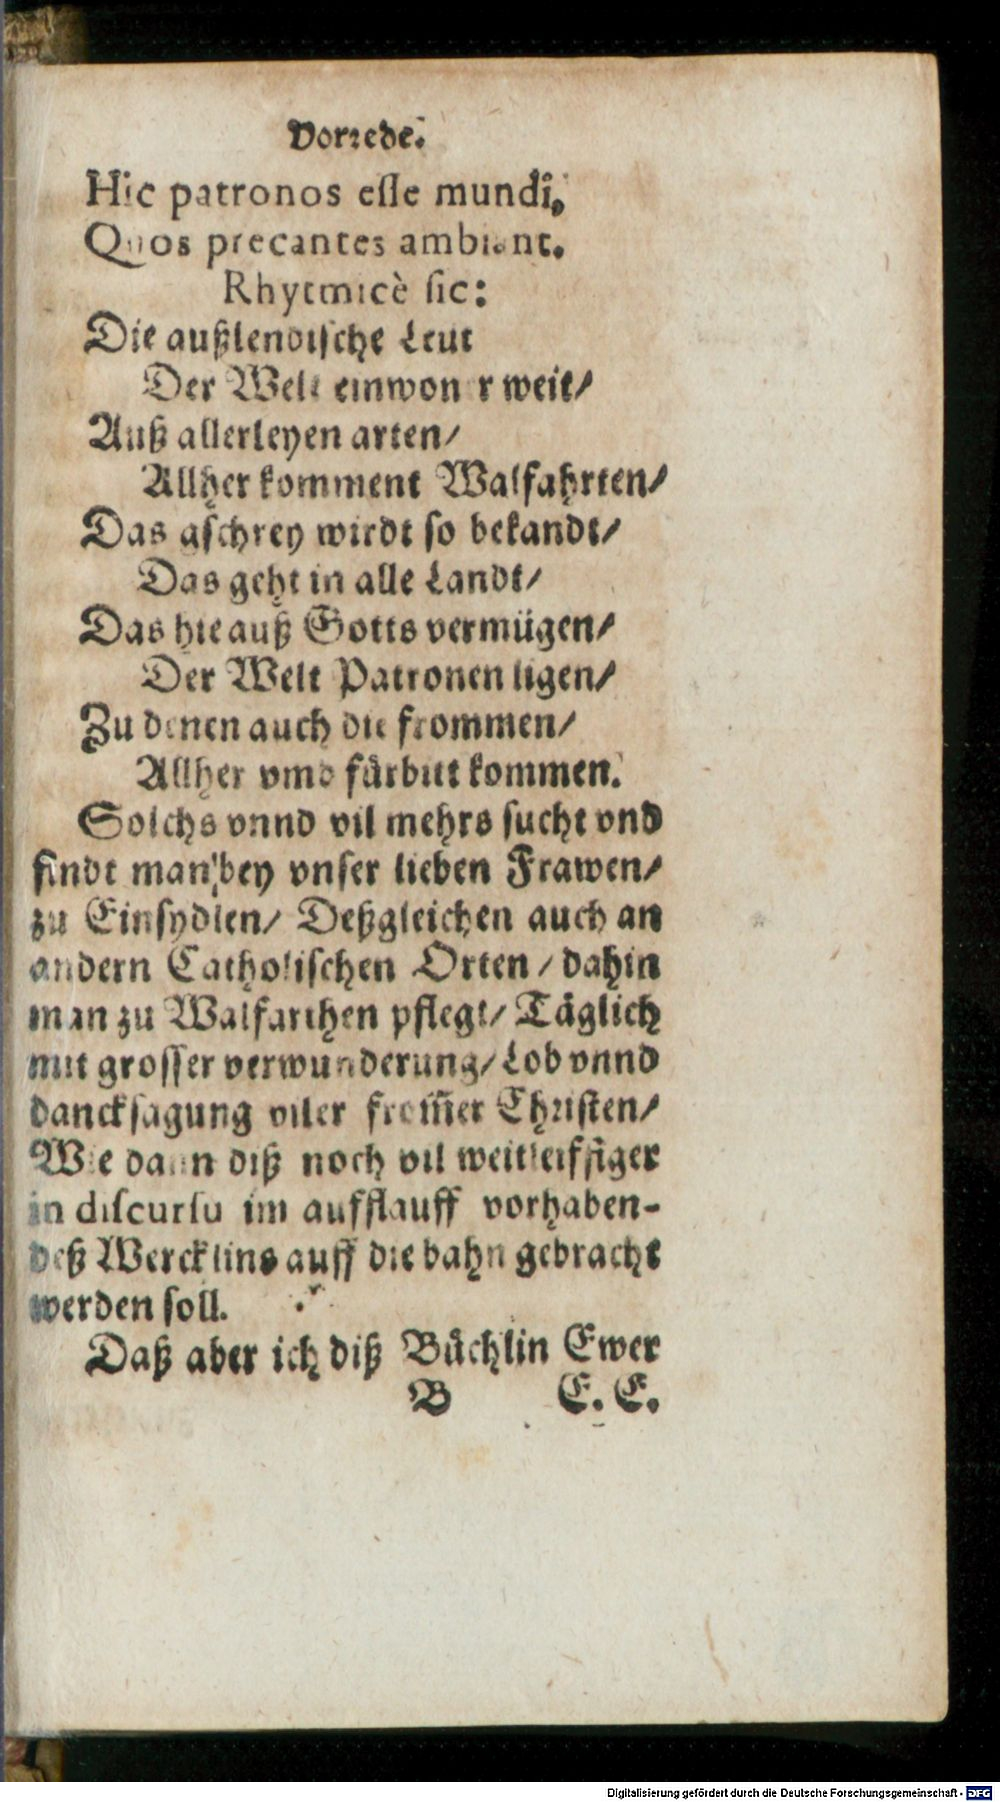 Vorrede.
Hic patronos esse mundi,
Quos precantes ambiant.
Rhytmicè sic:
Die außlendische Leut
Der Welt einwoner weit/
Auß allerleyen arten/
Allher komment Walfahrten/
Das gschrey wirdt so bekandt/
Das geht in alle Landt/
Das hie auß Gotts vermügen/
Der Welt Patronen ligen/
Zu denen auch die frommen/
Allher vmb fürbitt kommen.
Solchs vnnd vil mehrs sucht vnd
findt man bey vnser lieben Frawen/
zu Einsydlen/ Deßgleichen auch an
andern Catholischen Orten / dahin
man zu Walfarthen pflegt/ Täglich
mit grosser verwunderung/ Lob vnnd
dancksagung viler from̃er Christen/
Wie dann diß noch vil weitleiffiger
in discursu im aufflauff vorhaben-
deß Wercklins auff die bahn gebracht
werden soll.
Daß aber ich diß Büchlin Ewer
B E. E.
Digitalisierung gefördert durch die Deutsche Forschungsgemeinschaft - DFG